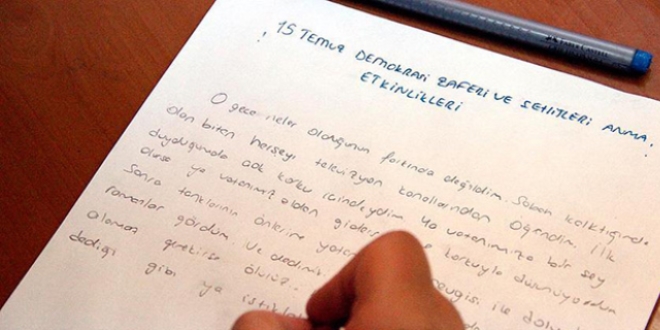 15 TEMUZ DEMOKRASİ ZAFERİ VE ŞEHİTLERİ ANMA
ETKİNLİKLERİ
O gece neler olduğunun farkında değildim. Sabah kalktığımda
olan biten herşeyi televizyon kanallarından öğrendim. İlk
duyduğumda çok korku içindeydim ya vatanımıza bir şey
olursa ya vatanımız elden giderse korkuyla düşünüyordum
Sonra tankların önlerine yatan
ramanlar gördüm. Ve dedim ile
gerekirse ölürüz.
dediği gibi ya istiklal